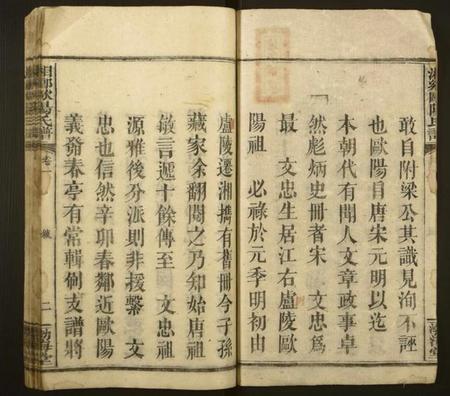 敢自附梁公其識見洵不誣
也歐陽自唐宋元明以迄
本朝代有聞人文章政事卓
然彪炳史冊者宋 文忠爲
最 文忠生居江右廬陵歐
陽祖 必祿於元季明初由
廬陵遷湘攜有舊冊今子孫
藏家余翻閱之乃知始唐祖
敏言遞十餘傳至 文忠祖
源雅後分派則非援繫 文
忠也信然辛卯春鄰近歐陽
義舜春亭有常輯侚支譜將
湘鄉歐陽氏譜
卷一
二
渤海堂
湘鄉歐陽氏譜
渤海堂